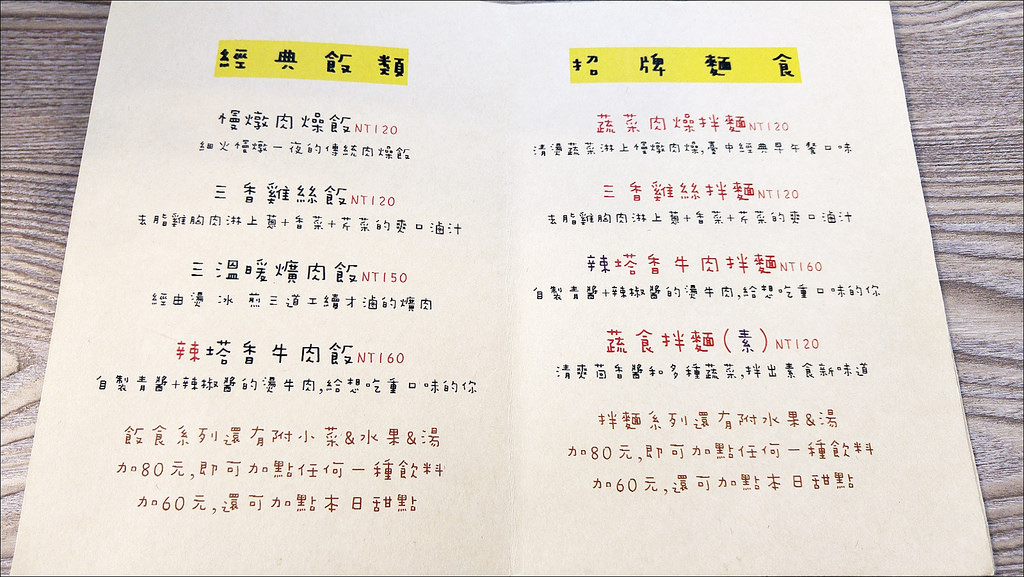 經典飯類
慢燉肉燥飯NT120
細火慢燉一夜的傳統肉燥飯
三香雞絲飯NT120
去脂雞胸肉淋上蔥+香菜+芹菜的爽口滷汁
三溫暖爌肉飯NT150
經由燙 冰 煎三道工續才滷的爌肉
辣塔香牛肉飯NT160
自製青醬+辣椒醬的燙牛肉,給想吃重口味的你
飯食系列還有附小菜&水果&湯
加80元,即可加點任何一種飲料
加60元,還可加點本日甜點
招牌麵食
蔬菜肉燥拌麵NT120
清燙蔬菜淋上慢燉肉燥,臺中經典早午餐口味
三香雞絲拌麵NT120
去脂雞胸肉淋上蔥+香菜+芹菜的爽口滷汁
辣塔香牛肉拌麵NT160
自製青醬+辣椒醬的燙牛肉,給想吃重口味的你
蔬食拌麵(素)NT120
清爽茴香醬和多種蔬菜,拌出素食新味道
拌麵系列還有附水果&湯
加80元,即可加點任何一種飲料
加60元,還可加點本日甜點